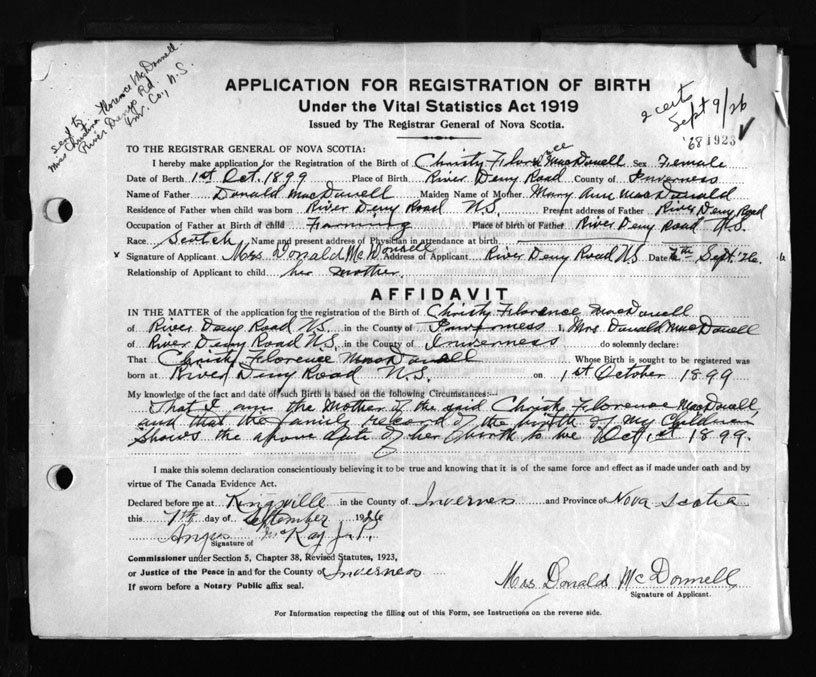 send to
Miss Christina Florence McDonnell.
River Denys Rd.
Inv. Co, N.S.
2 certs
Sept 9/26
APPLICATION FOR REGISTRATION OF BIRTH
Under the Vital Statistics Act 1919
Issued by The Registrar General of Nova Scotia.
TO THE REGISTRAR GENERAL OF NOVA SCOTIA:
I hereby make application for the Registration of the Birth of Christy Florence MacDonell Sex Female
Date of Birth 1st Oct. 1899 Place of Birth River Deny Road County of Inverness
Name of Father Donald MacDonell Maiden Name of Mother Mary Ann MacDonald
Residence of Father when child was born River Deny Road N.S. Present address of Father River Deny Road
Occupation of Father at Birth of child Farming Place of birth of Father River Deny Road N.S.
Race Scotch Name and present address of Physician in attendance at birth
x Signature of Applicant Mrs Donald McDonnell Address of Applicant River Deny Road NS Date Sept. '26.
Relationship of Applicant to child her mother.
AFFIDAVIT
IN THE MATTER of the application for the registration of the Birth of Christy Florence MacDonell
of River Deny Road N.S. in the County of Inverness I, Mrs Donald MacDonell
of River Deny Road N.S. in the County of Inverness do solemnly declare:
That Christy Florence MacDonell Whose Birth is sought to be registered was
born at River Deny Road N.S. on 1st October 1899
My knowledge of the fact and date of such Birth is based on the following Circumstances:—
That I am the Mother of the said Christy Florence MacDonell
and that the family record of the birth of my Children
shows the above date of her birth to be Oct 1st 1899.
I make this solemn declaration conscientiously believing it to be true and knowing that it is of the same force and effect as if made under oath and by
virtue of The Canada Evidence Act.
Declared before me at Kingsville in the County of Inverness and Province of Nova Scotia
this 7th day of September 1926
Angus McKay J.P.
Signature of
Commissioner under Section 5, Chapter 38, Revised Statutes, 1923,
or Justice of the Peace in and for the County of Inverness
If sworn before a Notary Public affix seal.
Mrs Donald McDonnell
Signature of Applicant.
For Information respecting the filling out of this Form, see Instructions on the reverse side.